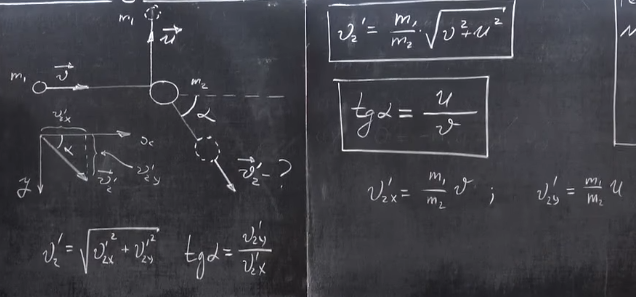 m₁
u⃗
m₁ v⃗ m₂
α
v'₂ₓ
x
α
v⃗'₂ v'₂y
y
v⃗'₂ - ?
v'₂ = √(v'₂ₓ² + v'₂y²) tgα = v'₂y / v'₂ₓ
v₂' = m₁/m₂ · √(v² + u²)
tgα = u / v
v'₂ₓ = m₁/m₂ v ; v'₂y = m₁/m₂ u